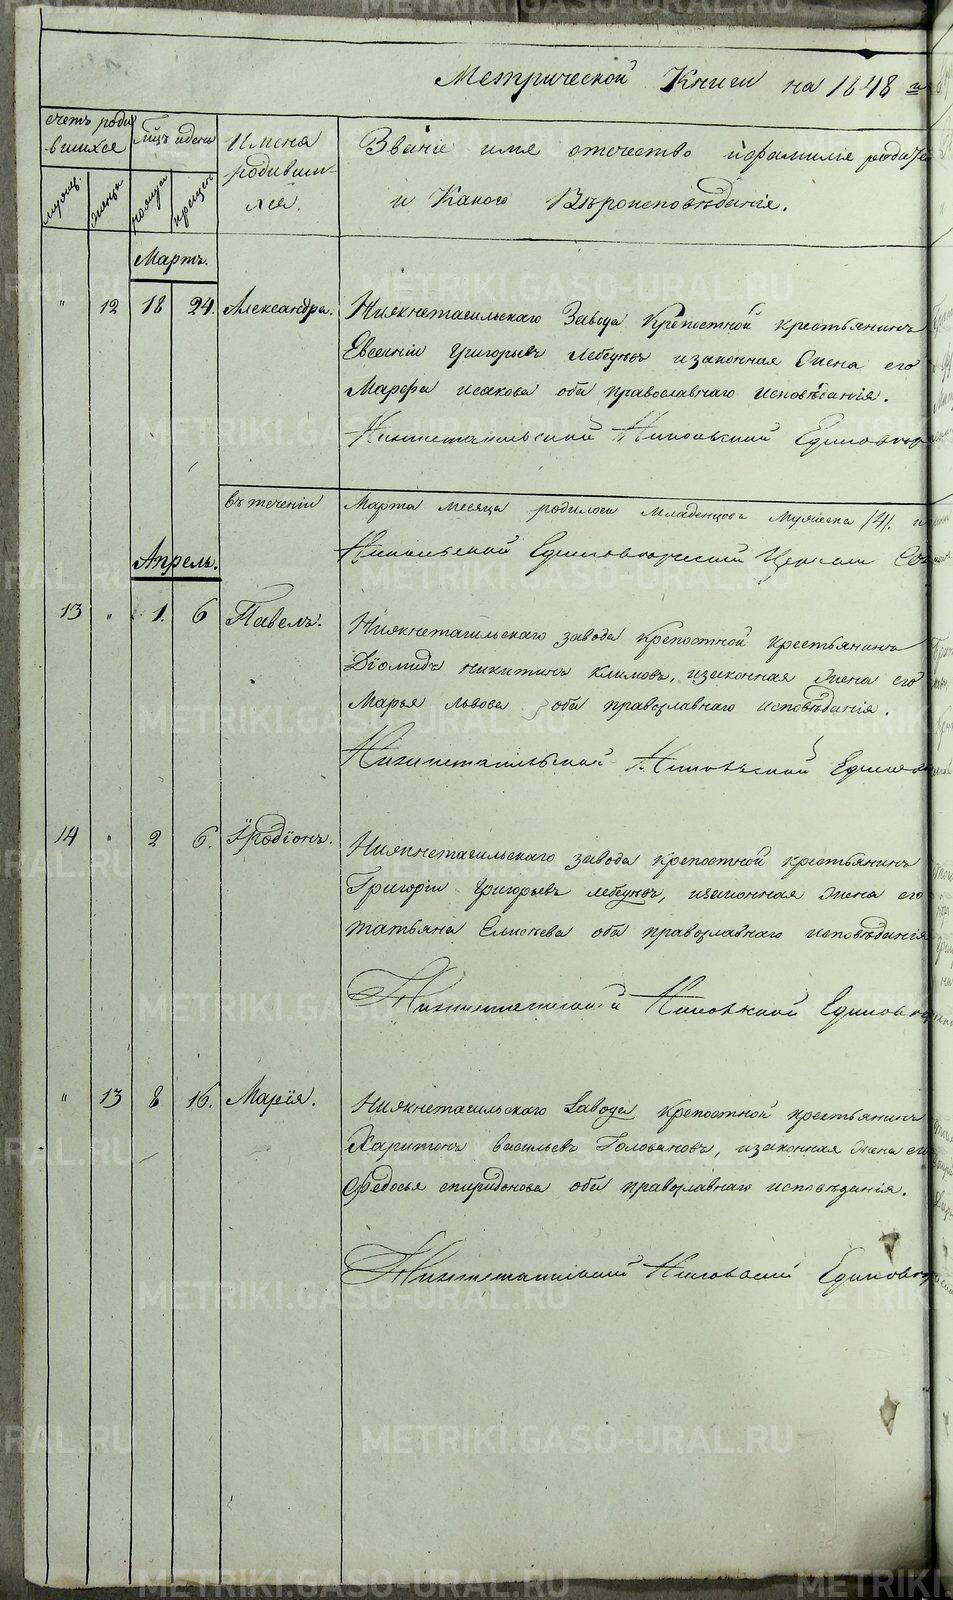 Метрической Книги на 1848 г
счетъ роди
вшихся
мцъ и день
Имена
родивши-
хся.
Званіе имя отечество и фамиліе родител
и Какого Вѣроисповѣданія.
мужеск.
женска
рожден
крещен
Мартъ.
" 12 18 24. Александра. Нижнетагильскаго Завода Крепостной крестьянинъ
Евгеніи григорьевъ Лебцовъ и законная Жена его
Марфа исакова оба православнаго исповѣданія.
Нижнетагильской Никольской Единовер
въ теченіи Марта месяца родилось Младенцовъ Мужеска /4/. и
Никольской Единоверческой Церкви Свя
Апрель.
13 " 1. 6 Павелъ. Нижнетагильскаго завода крепостной крестьянинъ
Діомидъ никитинъ климовъ, и законная Жена его
Марья львова оба православнаго исповѣданія.
Нижнетагильской Никольской Единов
14 " 2 6. Іродіонъ. Нижнетагильскаго завода крепостной крестьянинъ
Григоріи григорьевъ лебцовъ, и законная Жена его
татьяна Елисѣева оба православнаго исповѣданія
Нижнетагильской Никольской Единовер
" 13 8 16. Марія. Нижнетагильскаго Завода крепостной крестьянинъ
Харитонъ васильевъ Головановъ, и законная Жена его
Федосья спиридонова оба православнаго исповѣданія.
Нижнетагильской Никольской Единовер
METRIKI.GASO-URAL.RU